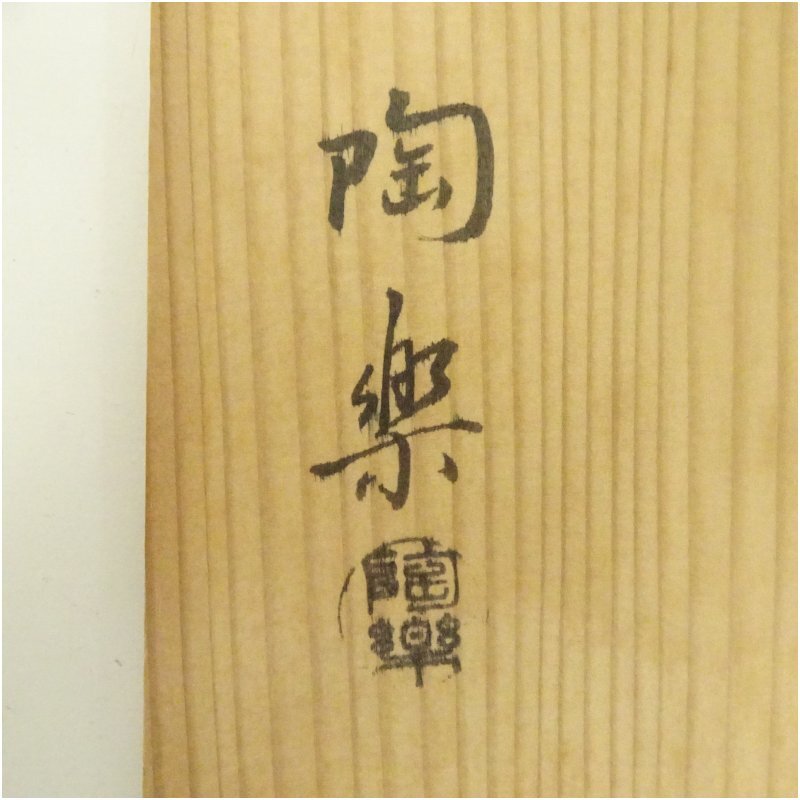 陶樂
陶樂